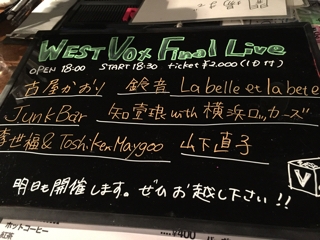 WEST VOX Final Live
OPEN 18:00 START 18:30 ticket ¥2,000(1D付)
古屋かおり 鈴音 La belle et la bete
JunkBar 知壹琅 with 横浜ロッカーズ
李世福 & Toshiken Maygoo 山下直子
明日も開催します。ぜひお越し下さい!!
V
ホットコーヒー ¥400
紅茶